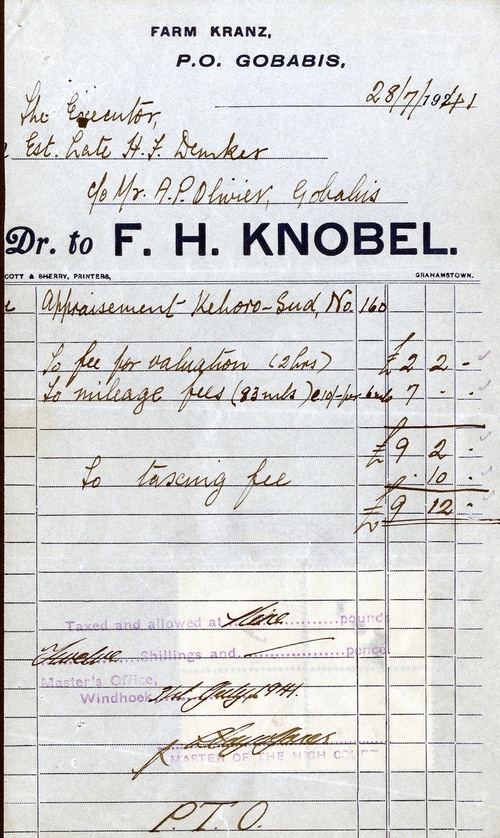 FARM KRANZ,
P.O. GOBABIS,
28/7/1941
The Executor,
Est. Late H. F. Demker
c/o Mr. A. P. Olivier, Gobabis
Dr. to F. H. KNOBEL.
COTT & SHERRY, PRINTERS, GRAHAMSTOWN.
Appraisement Kehoro-Sud, No. 160
To fee for valuation (2hrs) £ 2 2 -
To mileage fees (83 mls) @ 10/- per 7 - -
£ 9 2 -
To taxing fee - 10 -
£ 9 12 -
Taxed and allowed at Nine pounds
Twelve Shillings and pence.
Master's Office,
Windhoek July 1941.
MASTER OF THE HIGH COURT
P.T.O.